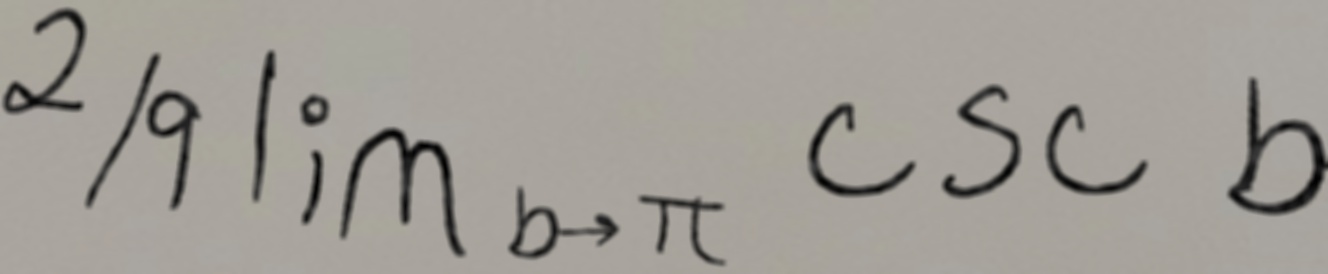 2/9 lim b→π csc b